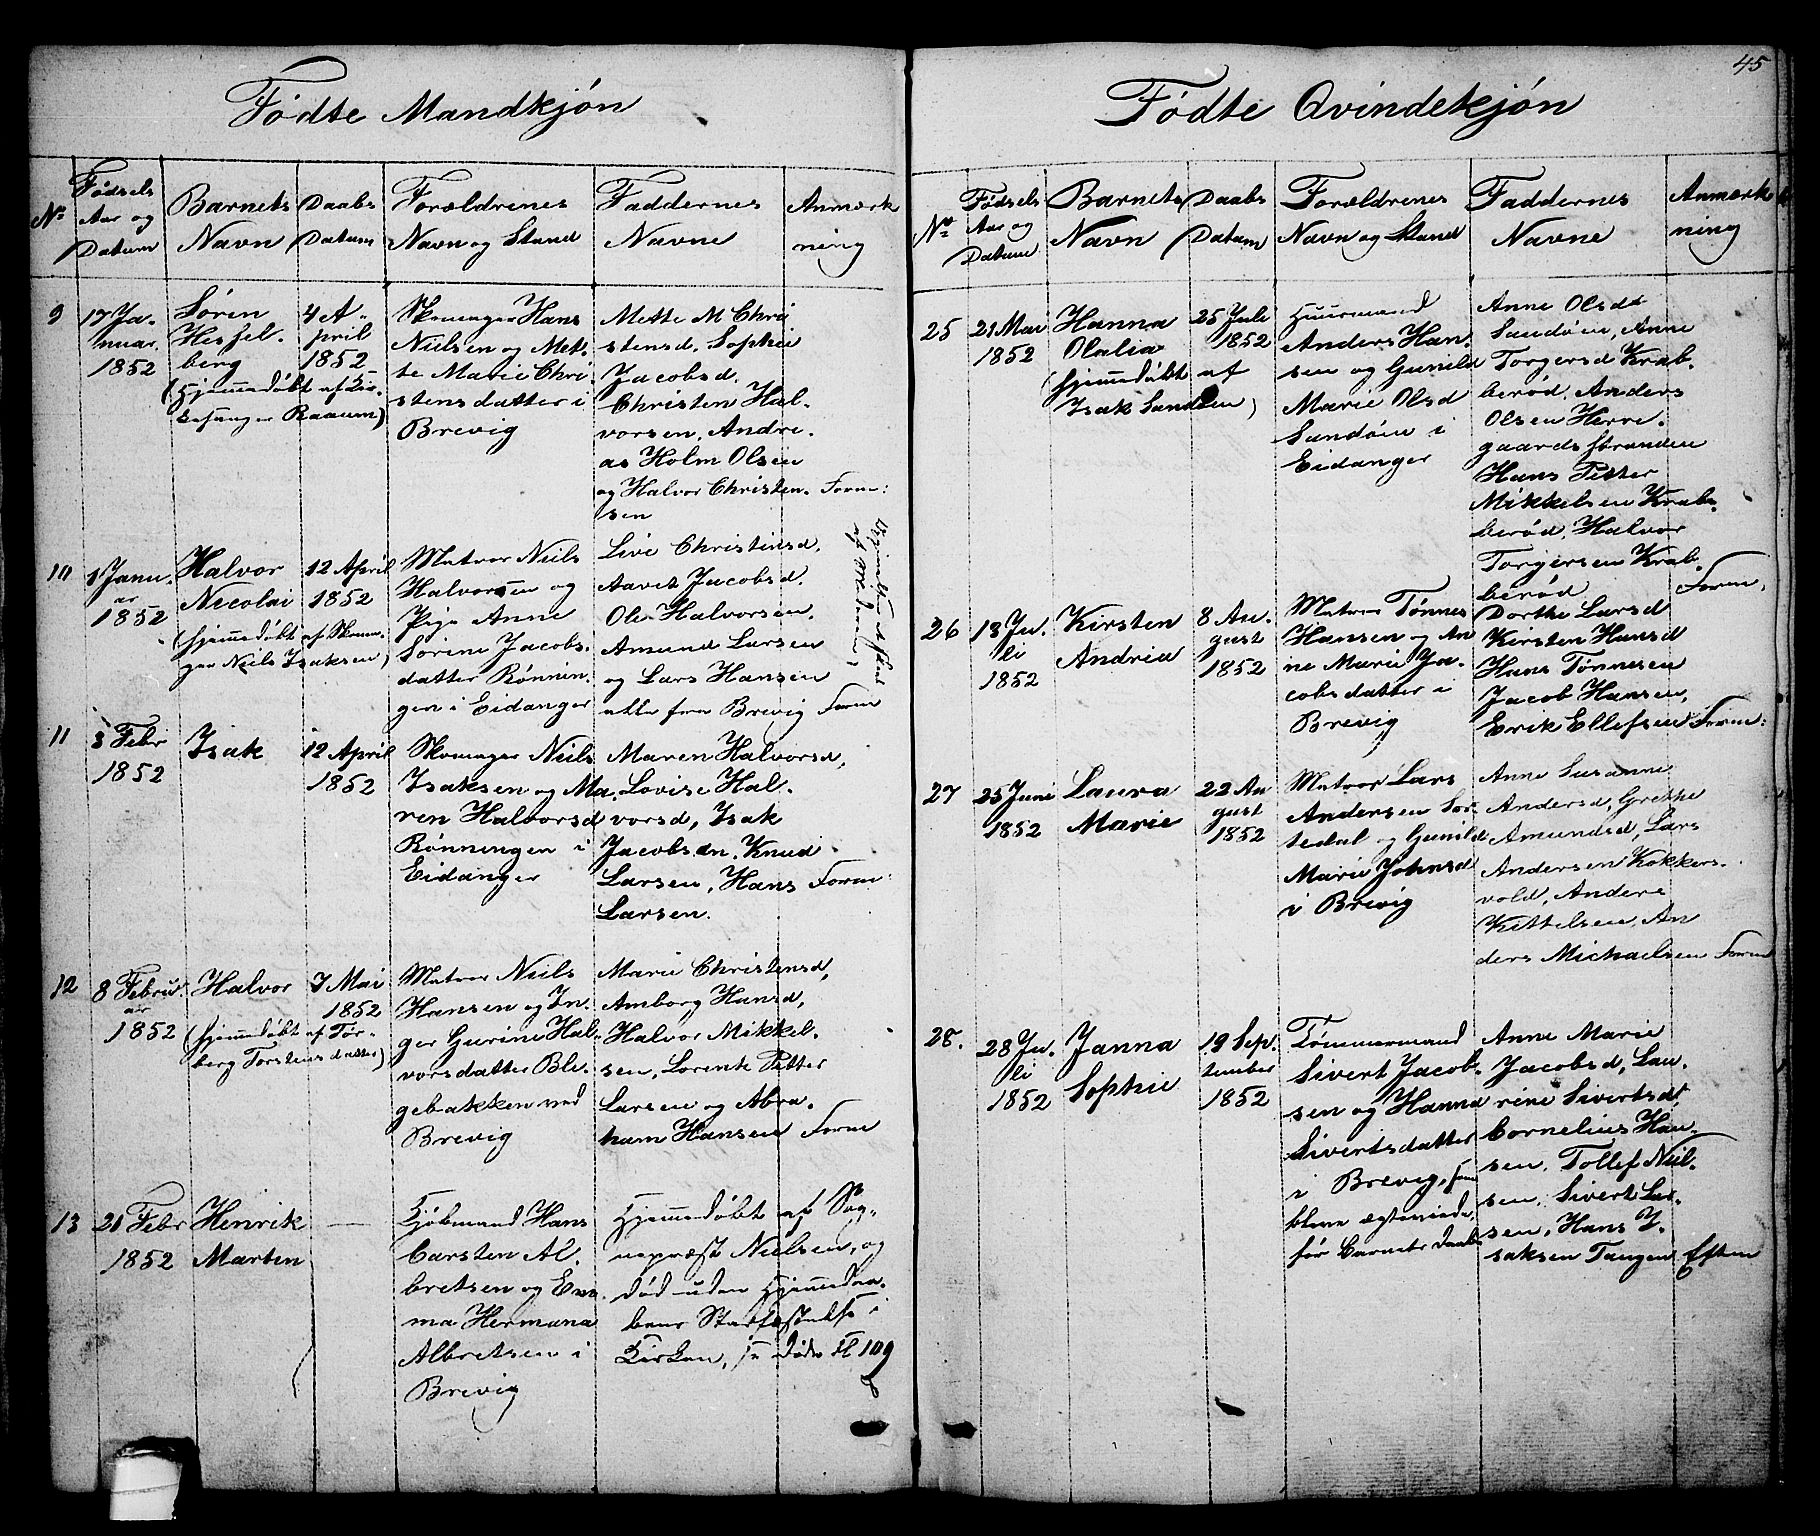 45
Fødte Mandkjøn
No
Fødsels Aar og Datum
Barnets Navn
Daabs Datum
Forældrenes Navn og Stand
Faddernes Navne
Anmærkning
9
17 Ja-
nuar
1852
Søren
Hesfel-
berg
(Hjemmedøbt af
Raaum)
4 A-
pril
1852
Skomager Hans
Nielsen og Met-
te Marie Chri-
stensdatter i
Brevig
Mette M Chri
stensd. Sophie
Jacobsd.
Christen Hal-
vorsen, Andre-
as Holm Olsen
og Halvor Christen-
sen
Form:
10
1 Janu-
ar
1852
Halvor
Nicolai
(hjemmedøbt af Skoma-
ger Niels Isaksen)
12 April
1852
Matros Niels
Halvorsen og
Pige Anne
Sørine Jacobs-
datter Rønnin-
gen i Eidanger
Live Christensd,
Aavet Jacobsd.
Ole Halvorsen.
Amund Larsen
og Lars Hansen
alle fra Brevig
Form
11
3 Febr
1852
Isak
12 April
1852
Skomager Niels
Isaksen og Ma-
ren Halvorsd
Rønningen i
Eidanger
Maren Halvorsd,
Lovise Hal-
vorsd, Isak
Jacobsen, Knud
Larsen, Hans
Larsen.
Form:
12
8 Febru-
ar
1852
Halvor
(hjemmedøbt af Tor-
berg Torstensdatter)
7 Mai
1852
Matros Niels
Hansen og In-
ger Gurine Hal-
vorsdatter Ble-
gebakken ved
Brevig
Marie Christensd,
Amborg Hansd,
Halvor Mikkel-
sen, Lorents Petter
Larsen og Abra-
ham Hansen
Form
13
21 Febr
1852
Henrik
Marten
—
Kjøbmand Hans
Carsten Al-
bretsen og Em-
ma Hermana
Albretsen i
Brevig
Hjemmedøbt af Sog-
nepræst Nielsen, og
død uden Hjemmedaa-
bens Stadfæstelse i
Kirken, se døde fl 109
Fødte Qvindekjøn
No
Fødsels Aar og Datum
Barnets Navn
Daabs Datum
Forældrenes Navn og Stand
Faddernes Navne
Anmærkning
25
21 Mai
1852
Hanna
Olalia
(hjemmedøbt af
Isak Sandøen)
25 Juli
1852
Huusmand
Anders Han-
sen og Gunild
Marie Olsd
Sandøen i
Eidanger
Anne Olsd
Sandøen, Anne
Torgersd Krab-
berød, Anders
Olsen Herre-
gaardsstranden
Hans Petter
Mikkelsen Krab-
berød, Halvor
Torgersen Krab-
berød
Form,
26
18 Ju-
li
1852
Kirsten
Andria
8 Au-
gust
1852
Matros Tønnes
Hansen og An
ne Marie Ja-
cobsdatter i
Brevig
Dorthe Larsd
Kirsten Hansd
Hans Tønnesen
Jacob Hansen,
Erik Ellefsen
Form:
27
25 Juni
1852
Laura
Marie
22 Au
gust
1852
Matros Lars
Andersen Sor-
tedal og Gunild
Marie Johnsd
i Brevig
Anne Susanne
Andersd, Grethe
Amundsd, Lars
Andersen Kokkers-
vold, Anders
Kittelsen, An
ders Michaelsen
Form
28.
28 Ju-
li
1852
Janna
Sophie
19 Sep-
tember
1852
Tømmermand
Sivert Jacob-
sen og Hanna
Sivertsdatter
i Brevig, som
bleve ægteviede
før Barnets Daab
Anne Marie
Jacobsd, Lau-
rine Sivertsdt
Cornelius Han-
sen, Tollef Niel-
sen, Sivert Lar-
sen, Hans I-
saksen Tangen
Eftm